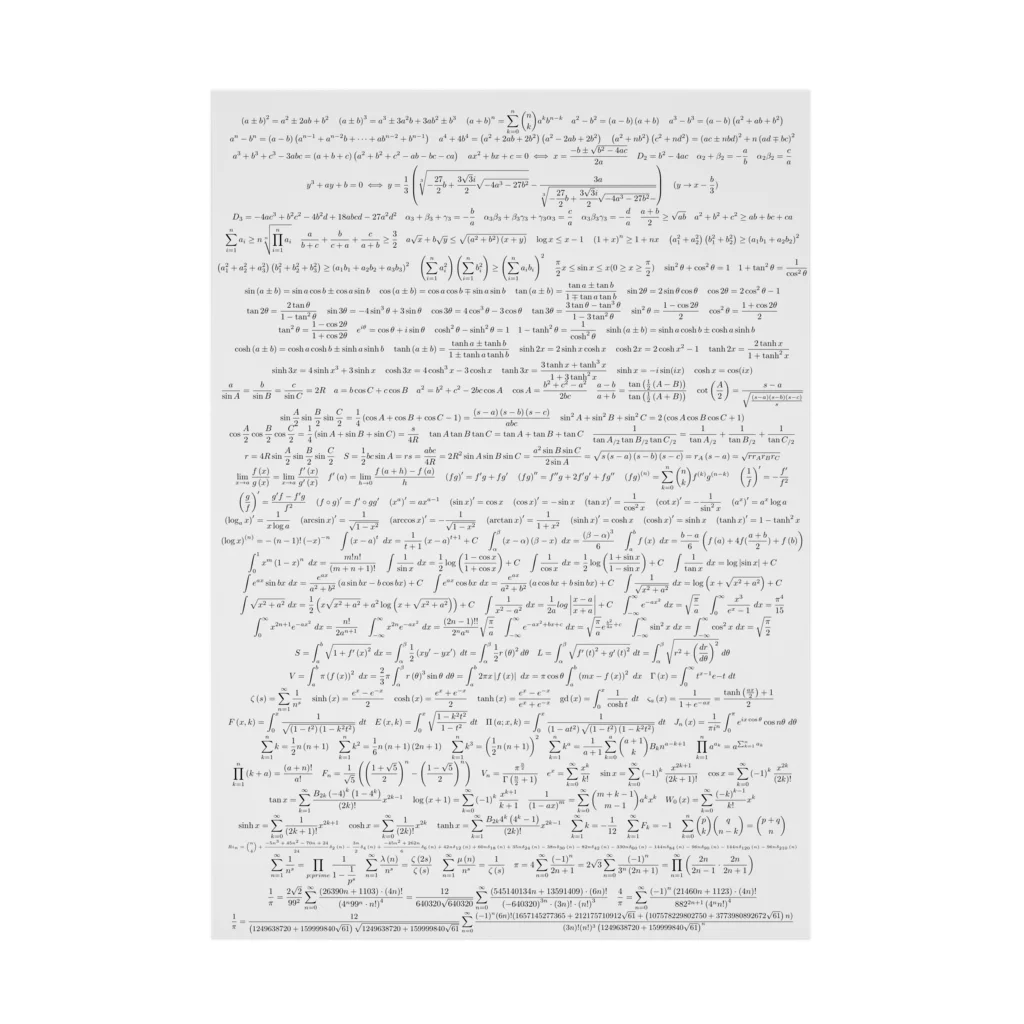 (a ± b)² = a² ± 2ab + b²   (a ± b)³ = a³ ± 3a²b + 3ab² ± b³   (a + b)ⁿ = ∑_{k=0}^{n} (n k) aᵏbⁿ⁻ᵏ   a² − b² = (a − b)(a + b)   a³ − b³ = (a − b)(a² + ab + b²)
aⁿ − bⁿ = (a − b)(aⁿ⁻¹ + aⁿ⁻²b + ··· + abⁿ⁻² + bⁿ⁻¹)   a⁴ + 4b⁴ = (a² + 2ab + 2b²)(a² − 2ab + 2b²)   (a² + nb²)(c² + nd²) = (ac ± nbd)² + n(ad ∓ bc)²
a³ + b³ + c³ − 3abc = (a + b + c)(a² + b² + c² − ab − bc − ca)   ax² + bx + c = 0 ⟺ x = (−b ± √(b² − 4ac))/2a   D₂ = b² − 4ac   α₂ + β₂ = −a/b   α₂β₂ = c/a
y³ + ay + b = 0 ⟺ y = 1/3 (∛(−27/2 b + 3√3i/2 √(−4a³ − 27b²)) − 3a/∛(−27/2 b + 3√3i/2 √(−4a³ − 27b²−)))   (y → x − b/3)
D₃ = −4ac³ + b²c² − 4b²d + 18abcd − 27a²d²   α₃ + β₃ + γ₃ = −b/a   α₃β₃ + β₃γ₃ + γ₃α₃ = c/a   α₃β₃γ₃ = −d/a   (a + b)/2 ≥ √ab   a² + b² + c² ≥ ab + bc + ca
∑_{i=1}^{n} aᵢ ≥ n ⁿ√(∏_{i=1}^{n} aᵢ)   a/(b + c) + b/(c + a) + c/(a + b) ≥ 3/2   a√x + b√y ≤ √((a² + b²)(x + y))   log x ≤ x − 1   (1 + x)ⁿ ≥ 1 + nx   (a₁² + a₂²)(b₁² + b₂²) ≥ (a₁b₁ + a₂b₂)²
(a₁² + a₂² + a₃²)(b₁² + b₂² + b₃²) ≥ (a₁b₁ + a₂b₂ + a₃b₃)²   (∑_{i=1}^{n} aᵢ²)(∑_{i=1}^{n} bᵢ²) ≥ (∑_{i=1}^{n} aᵢbᵢ)²   π/2 x ≤ sin x ≤ x(0 ≥ x ≥ π/2)   sin²θ + cos²θ = 1   1 + tan²θ = 1/cos²θ
sin(a ± b) = sin a cos b ± cos a sin b   cos(a ± b) = cos a cos b ∓ sin a sin b   tan(a ± b) = (tan a ± tan b)/(1 ∓ tan a tan b)   sin 2θ = 2 sin θ cos θ   cos 2θ = 2 cos²θ − 1
tan 2θ = 2 tan θ/(1 − tan²θ)   sin 3θ = −4 sin³θ + 3 sin θ   cos 3θ = 4 cos³θ − 3 cos θ   tan 3θ = (3 tan θ − tan³θ)/(1 − 3 tan²θ)   sin²θ = (1 − cos 2θ)/2   cos²θ = (1 + cos 2θ)/2
tan²θ = (1 − cos 2θ)/(1 + cos 2θ)   e^{iθ} = cos θ + i sin θ   cosh²θ − sinh²θ = 1   1 − tanh²θ = 1/cosh²θ   sinh(a ± b) = sinh a cosh b ± cosh a sinh b
cosh(a ± b) = cosh a cosh b ± sinh a sinh b   tanh(a ± b) = (tanh a ± tanh b)/(1 ± tanh a tanh b)   sinh 2x = 2 sinh x cosh x   cosh 2x = 2 cosh x² − 1   tanh 2x = 2 tanh x/(1 + tanh² x)
sinh 3x = 4 sinh x³ + 3 sinh x   cosh 3x = 4 cosh³ x − 3 cosh x   tanh 3x = (3 tanh x + tanh³ x)/(1 + 3 tanh² x)   sinh x = −i sin(ix)   cosh x = cos(ix)
a/sin A = b/sin B = c/sin C = 2R   a = b cos C + c cos B   a² = b² + c² − 2bc cos A   cos A = (b² + c² − a²)/2bc   (a − b)/(a + b) = tan(½(A − B))/tan(½(A + B))   cot(A/2) = (s − a)/√((s−a)(s−b)(s−c)/s)
sin A/2 sin B/2 sin C/2 = 1/4 (cos A + cos B + cos C − 1) = (s − a)(s − b)(s − c)/abc   sin² A + sin² B + sin² C = 2(cos A cos B cos C + 1)
cos A/2 cos B/2 cos C/2 = 1/4 (sin A + sin B + sin C) = s/4R   tan A tan B tan C = tan A + tan B + tan C   1/(tan A/2 tan B/2 tan C/2) = 1/tan A/2 + 1/tan B/2 + 1/tan C/2
r = 4R sin A/2 sin B/2 sin C/2   S = 1/2 bc sin A = rs = abc/4R = 2R² sin A sin B sin C = a² sin B sin C/2 sin A = √(s(s − a)(s − b)(s − c)) = r_A(s − a) = √(r r_A r_B r_C)
lim_{x→a} f(x)/g(x) = lim_{x→a} f′(x)/g′(x)   f′(a) = lim_{h→0} (f(a + h) − f(a))/h   (fg)′ = f′g + fg′   (fg)″ = f″g + 2f′g′ + fg″   (fg)⁽ⁿ⁾ = ∑_{k=0}^{n} (n k) f⁽ᵏ⁾g⁽ⁿ⁻ᵏ⁾   (1/f)′ = −f′/f²
(g/f)′ = (g′f − f′g)/f²   (f ∘ g)′ = f′ ∘ gg′   (xᵃ)′ = axᵃ⁻¹   (sin x)′ = cos x   (cos x)′ = − sin x   (tan x)′ = 1/cos² x   (cot x)′ = −1/sin² x   (aˣ)′ = aˣ log a
(logₐ x)′ = 1/(x log a)   (arcsin x)′ = 1/√(1 − x²)   (arccos x)′ = −1/√(1 − x²)   (arctan x)′ = 1/(1 + x²)   (sinh x)′ = cosh x   (cosh x)′ = sinh x   (tanh x)′ = 1 − tanh² x
(log x)⁽ⁿ⁾ = −(n − 1)! (−x)⁻ⁿ   ∫(x − a)ᵗ dx = 1/(t + 1) (x − a)ᵗ⁺¹ + C   ∫_α^β (x − α)(β − x) dx = (β − α)³/6   ∫_a^b f(x) dx = (b − a)/6 (f(a) + 4f((a + b)/2) + f(b))
∫_0^1 xᵐ(1 − x)ⁿ dx = m!n!/(m + n + 1)!   ∫ 1/sin x dx = 1/2 log((1 − cos x)/(1 + cos x)) + C   ∫ 1/cos x dx = 1/2 log((1 + sin x)/(1 − sin x)) + C   ∫ 1/tan x dx = log |sin x| + C
∫ e^{ax} sin bx dx = e^{ax}/(a² + b²) (a sin bx − b cos bx) + C   ∫ e^{ax} cos bx dx = e^{ax}/(a² + b²) (a cos bx + b sin bx) + C   ∫ 1/√(x² + a²) dx = log(x + √(x² + a²)) + C
∫ √(x² + a²) dx = 1/2 (x√(x² + a²) + a² log(x + √(x² + a²))) + C   ∫ 1/(x² − a²) dx = 1/2a log |(x − a)/(x + a)| + C   ∫_{−∞}^{∞} e^{−ax²} dx = √(π/a)   ∫_0^∞ x³/(eˣ − 1) dx = π⁴/15
∫_0^∞ x²ⁿ⁺¹e^{−ax²} dx = n!/2aⁿ⁺¹   ∫_{−∞}^{∞} x²ⁿe^{−ax²} dx = (2n − 1)!!/2ⁿaⁿ √(π/a)   ∫_{−∞}^{∞} e^{−ax²+bx+c} dx = √(π/a) e^{b²/4a + c}   ∫_{−∞}^{∞} sin² x dx = ∫_{−∞}^{∞} cos² x dx = √(π/2)
S = ∫_a^b √(1 + f′(x)²) dx = ∫_α^β 1/2 (xy′ − yx′) dt = ∫_α^β 1/2 r(θ)² dθ   L = ∫_α^β √(f′(t)² + g′(t)²) dt = ∫_α^β √(r² + (dr/dθ)²) dθ
V = ∫_a^b π(f(x))² dx = 2/3 π ∫_α^β r(θ)³ sin θ dθ = ∫_a^b 2πx |f(x)| dx = π cos θ ∫_a^b (mx − f(x))² dx   Γ(x) = ∫_0^∞ tˣ⁻¹e−t dt
ζ(s) = ∑_{n=1}^{∞} 1/nˢ   sinh(x) = (eˣ − e⁻ˣ)/2   cosh(x) = (eˣ + e⁻ˣ)/2   tanh(x) = (eˣ − e⁻ˣ)/(eˣ + e⁻ˣ)   gd(x) = ∫_0^x 1/cosh t dt   ςₐ(x) = 1/(1 + e^{−ax}) = (tanh(ax/2) + 1)/2
F(x, k) = ∫_0^x 1/√((1 − t²)(1 − k²t²)) dt   E(x, k) = ∫_0^x √((1 − k²t²)/(1 − t²)) dt   Π(a; x, k) = ∫_0^x 1/((1 − at²)√((1 − t²)(1 − k²t²))) dt   Jₙ(x) = 1/πiⁿ ∫_0^π e^{ix cos θ} cos nθ dθ
∑_{k=1}^{n} k = 1/2 n(n + 1)   ∑_{k=1}^{n} k² = 1/6 n(n + 1)(2n + 1)   ∑_{k=1}^{n} k³ = (1/2 n(n + 1))²   ∑_{k=1}^{n} kᵃ = 1/(a + 1) ∑_{k=0}^{a} (a + 1 k) Bₖnᵃ⁻ᵏ⁺¹   ∏_{k=1}^{n} a^{aₖ} = a^{∑_{k=1}^{n} aₖ}
∏_{k=1}^{n} (k + a) = (a + n)!/a!   Fₙ = 1/√5 (((1 + √5)/2)ⁿ − ((1 − √5)/2)ⁿ)   Vₙ = π^{n/2}/Γ(n/2 + 1)   eˣ = ∑_{k=0}^{∞} xᵏ/k!   sin x = ∑_{k=0}^{∞} (−1)ᵏ x²ᵏ⁺¹/(2k+1)!   cos x = ∑_{k=0}^{∞} (−1)ᵏ x²ᵏ/(2k)!
tan x = ∑_{k=1}^{∞} B₂ₖ(−4)ᵏ(1 − 4ᵏ)/(2k)! x²ᵏ⁻¹   log(x + 1) = ∑_{k=0}^{∞} (−1)ᵏ xᵏ⁺¹/(k + 1)   1/(1 − ax)ᵐ = ∑_{k=0}^{∞} (m + k − 1 m − 1) aᵏxᵏ   W₀(x) = ∑_{k=0}^{∞} (−k)ᵏ⁻¹/k! xᵏ
sinh x = ∑_{k=0}^{∞} 1/(2k + 1)! x²ᵏ⁺¹   cosh x = ∑_{k=0}^{∞} 1/(2k)! x²ᵏ   tanh x = ∑_{k=1}^{∞} B₂ₖ4ᵏ(4ᵏ − 1)/(2k)! x²ᵏ⁻¹   ∑_{k=1}^{∞} k = −1/12   ∑_{k=1}^{∞} Fₖ = −1   ∑_{k=0}^{n} (p k)(q n − k) = (p + q n)
∑_{n=1}^{∞} 1/nˢ = ∏_{p:prime} 1/(1 − 1/pˢ)   ∑_{n=1}^{∞} λ(n)/nˢ = ζ(2s)/ζ(s)   ∑_{n=1}^{∞} μ(n)/nˢ = 1/ζ(s)   π = 4∑_{n=0}^{∞} (−1)ⁿ/(2n + 1) = 2√3 ∑_{n=0}^{∞} (−1)ⁿ/3ⁿ(2n + 1) = ∏_{n=1}^{∞} (2n/(2n − 1) · 2n/(2n + 1))
1/π = 2√2/99² ∑_{n=0}^{∞} (26390n + 1103) · (4n)!/(4ⁿ99ⁿ · n!)⁴ = 12/640320√640320 ∑_{n=0}^{∞} (545140134n + 13591409) · (6n)!/(−640320)³ⁿ · (3n)! · (n!)³   4/π = ∑_{n=0}^{∞} (−1)ⁿ(21460n + 1123) · (4n)!/882²ⁿ⁺¹(4ⁿn!)⁴
1/π = 12/(1249638720 + 159999840√61)√(1249638720 + 159999840√61) ∑_{n=0}^{∞} (−1)ⁿ(6n)!(1657145277365 + 212175710912√61 + (107578229802750 + 3773980892672√61) n)/(3n)!(n!)³(1249638720 + 159999840√61)ⁿ